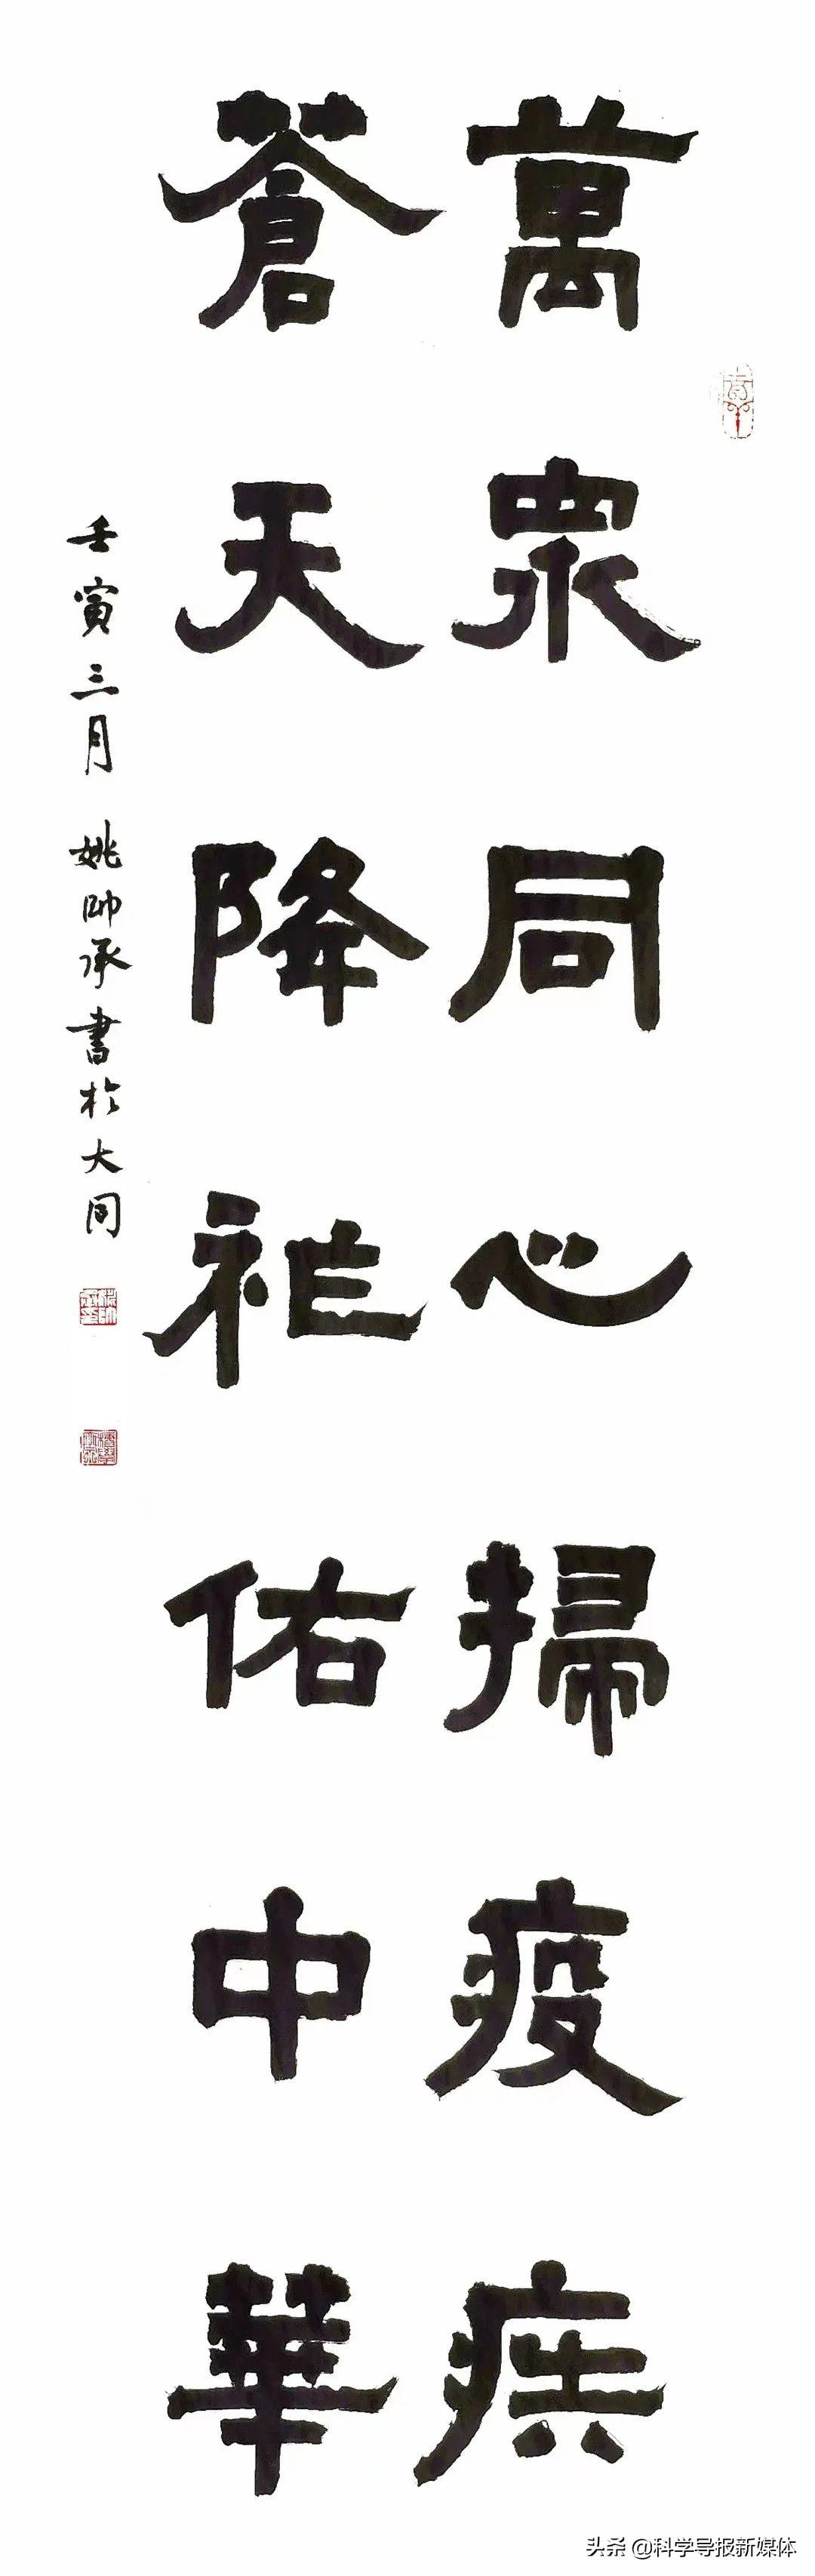 萬衆同心掃疫疾
蒼天降祉佑中華
壬寅三月 姚帥承書於大同
头条 @科学导报新媒体